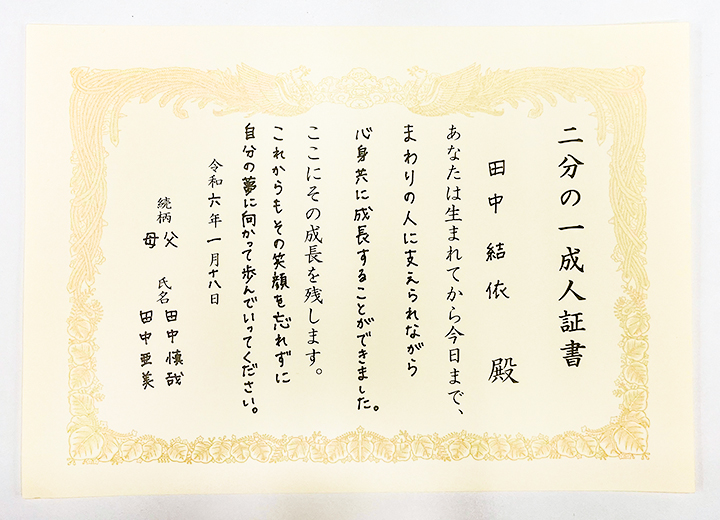 二分の一成人証書
田中結依 殿
あなたは生まれてから今日まで、
まわりの人に支えられながら
心身共に成長することができました。
ここにその成長を残します。
これからもその笑顔を忘れずに
自分の夢に向かって歩んでいってください。
令和六年一月十八日
続柄 父 氏名 田中慎哉
母 田中亜美